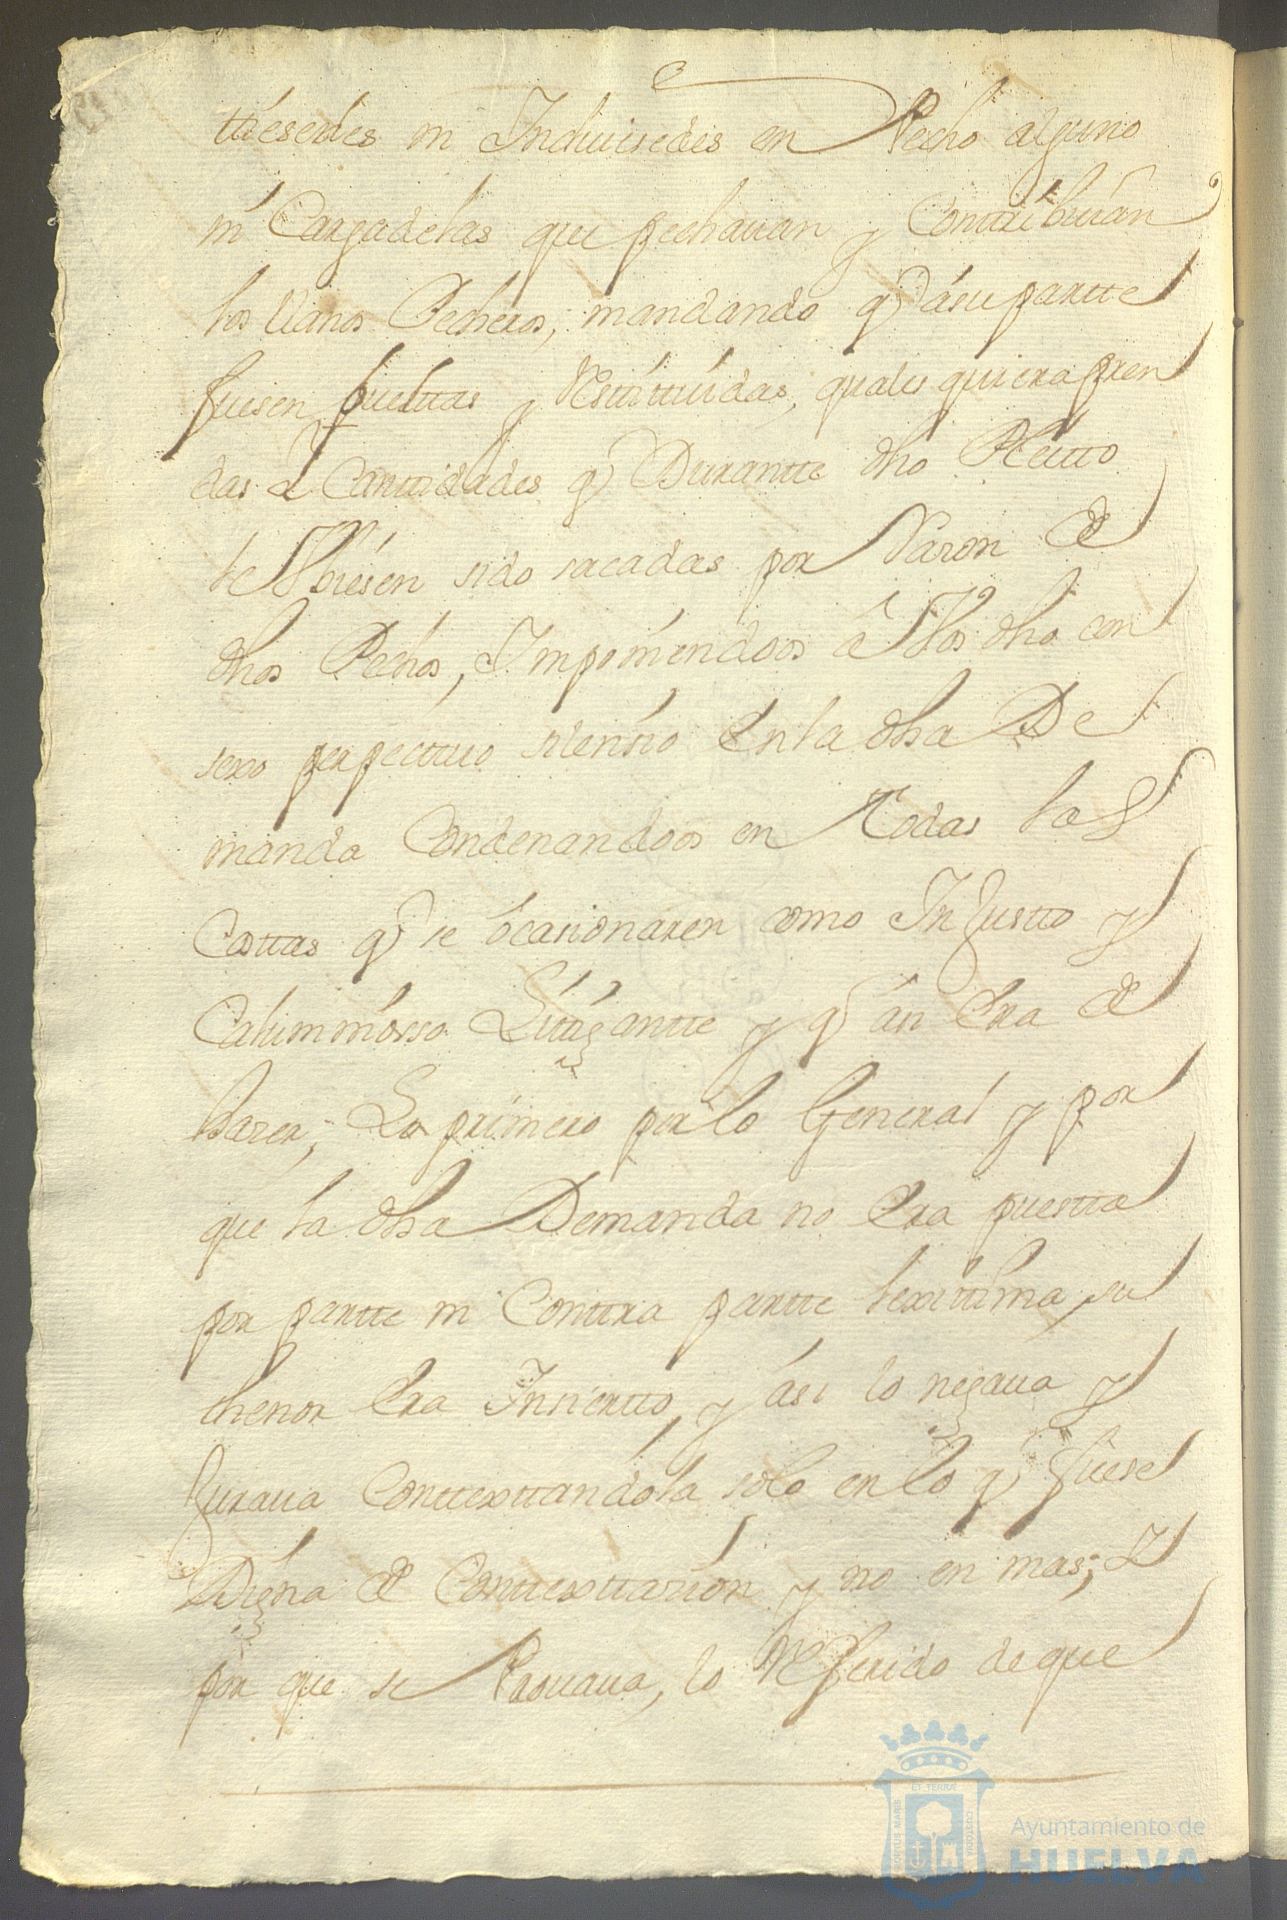 ttiesedes ni Induciesedes en Pecho alguno
ni Cargadelas que pechauan y Contribuian
los llanos Pecheros, mandando q̃ ásu partte
fuesen bueltas y Restittuidas, quales quiera pren
das Y Canttidades q̃ Durantte dho Pleitto
le Vbiesen sido sacadas por Razon de
dhos Pechos, Imponiendoos á Vos dho con
sexo perpettuo silensio En la dha De
manda Condenandoos en Todas las
Costtas q̃ se ocasionaren como Injustto y
Calumniosso Litigantte y q̃ ási Era de
hazer; Lo primero por lo General y por
que la dha Demanda no Era puestta
por partte ni Conttra partte lexittima, su
thenor Era Insiertto, y ási lo negaua y
Juraua Conttexttandola solo en lo q̃ fuese
Digna de Conttexttazion y no en mas; Y
por que se Prouaua, lo Referido de que
ET TERRÆ
PORTUS MARIS
CUSTODIA
Ayuntamiento de
HUELVA